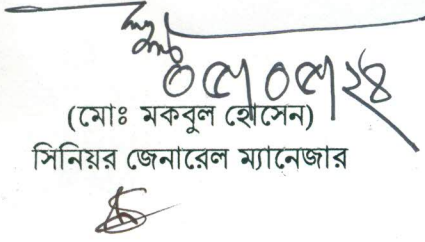 ০৫/০৫/২৪
(মোঃ মকবুল হোসেন)
সিনিয়র জেনারেল ম্যানেজার